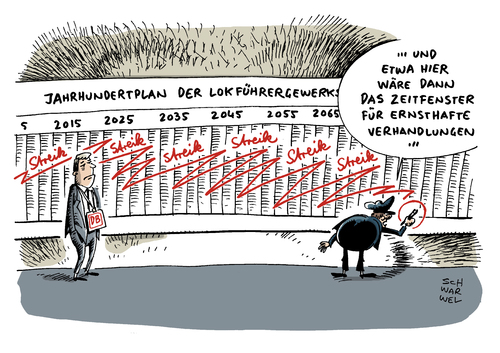 ... UND
ETWA HIER
WÄRE DANN
DAS ZEITFENSTER
FÜR ERNSTHAFTE
VERHANDLUNGEN
...
JAHRHUNDERTPLAN DER LOKFÜHRERGEWERKS
5 2015 2025 2035 2045 2055 2065
Streik Streik Streik Streik Streik Streik
DB
SCH
WAR
WEL